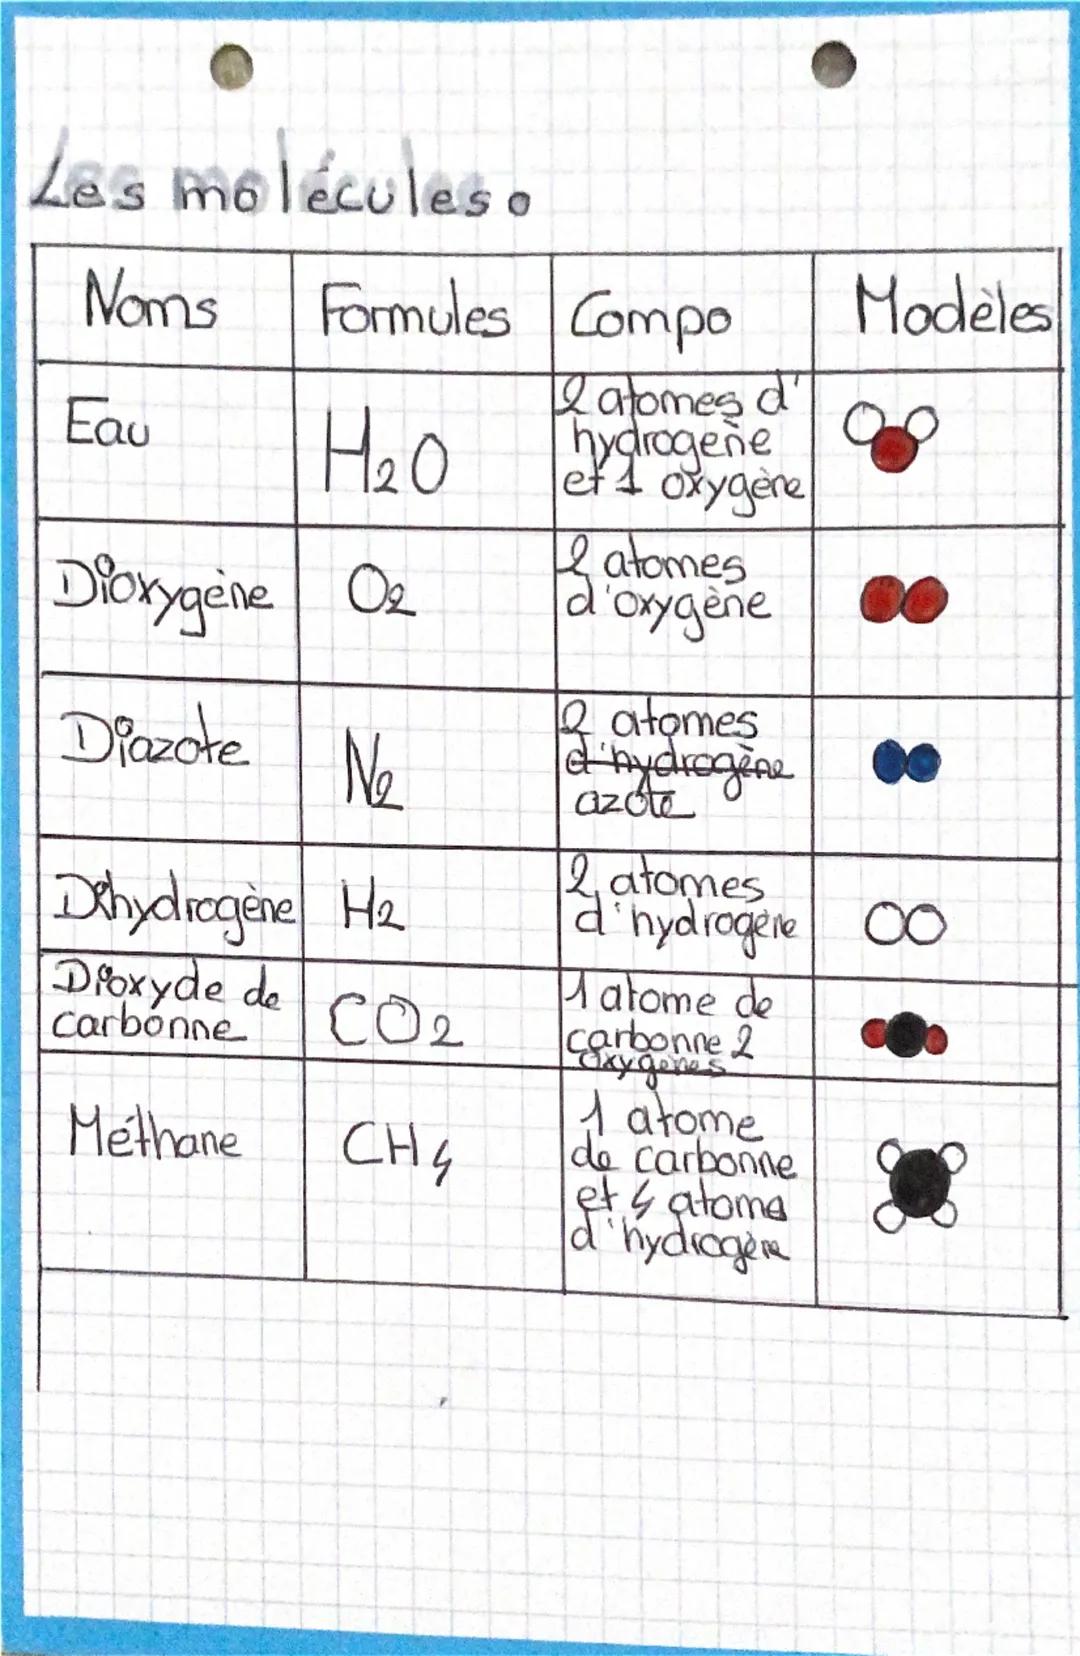 Les molécules
Noms Formules Compo Modèles
Eau H2O 2 atomes d'
hydrogène
et 1 oxygène
Dioxygène O2 2 atomes
d'oxygène
Diazote N2 2 atomes
d'hydrogène
azote
Dihydrogène H2 2 atomes
d'hydrogène
Dioxyde de
carbonne CO2 1 atome de
carbonne 2
oxygènes
Méthane CH4 1 atome
de carbonne
et 4 atome
d'hydrogène